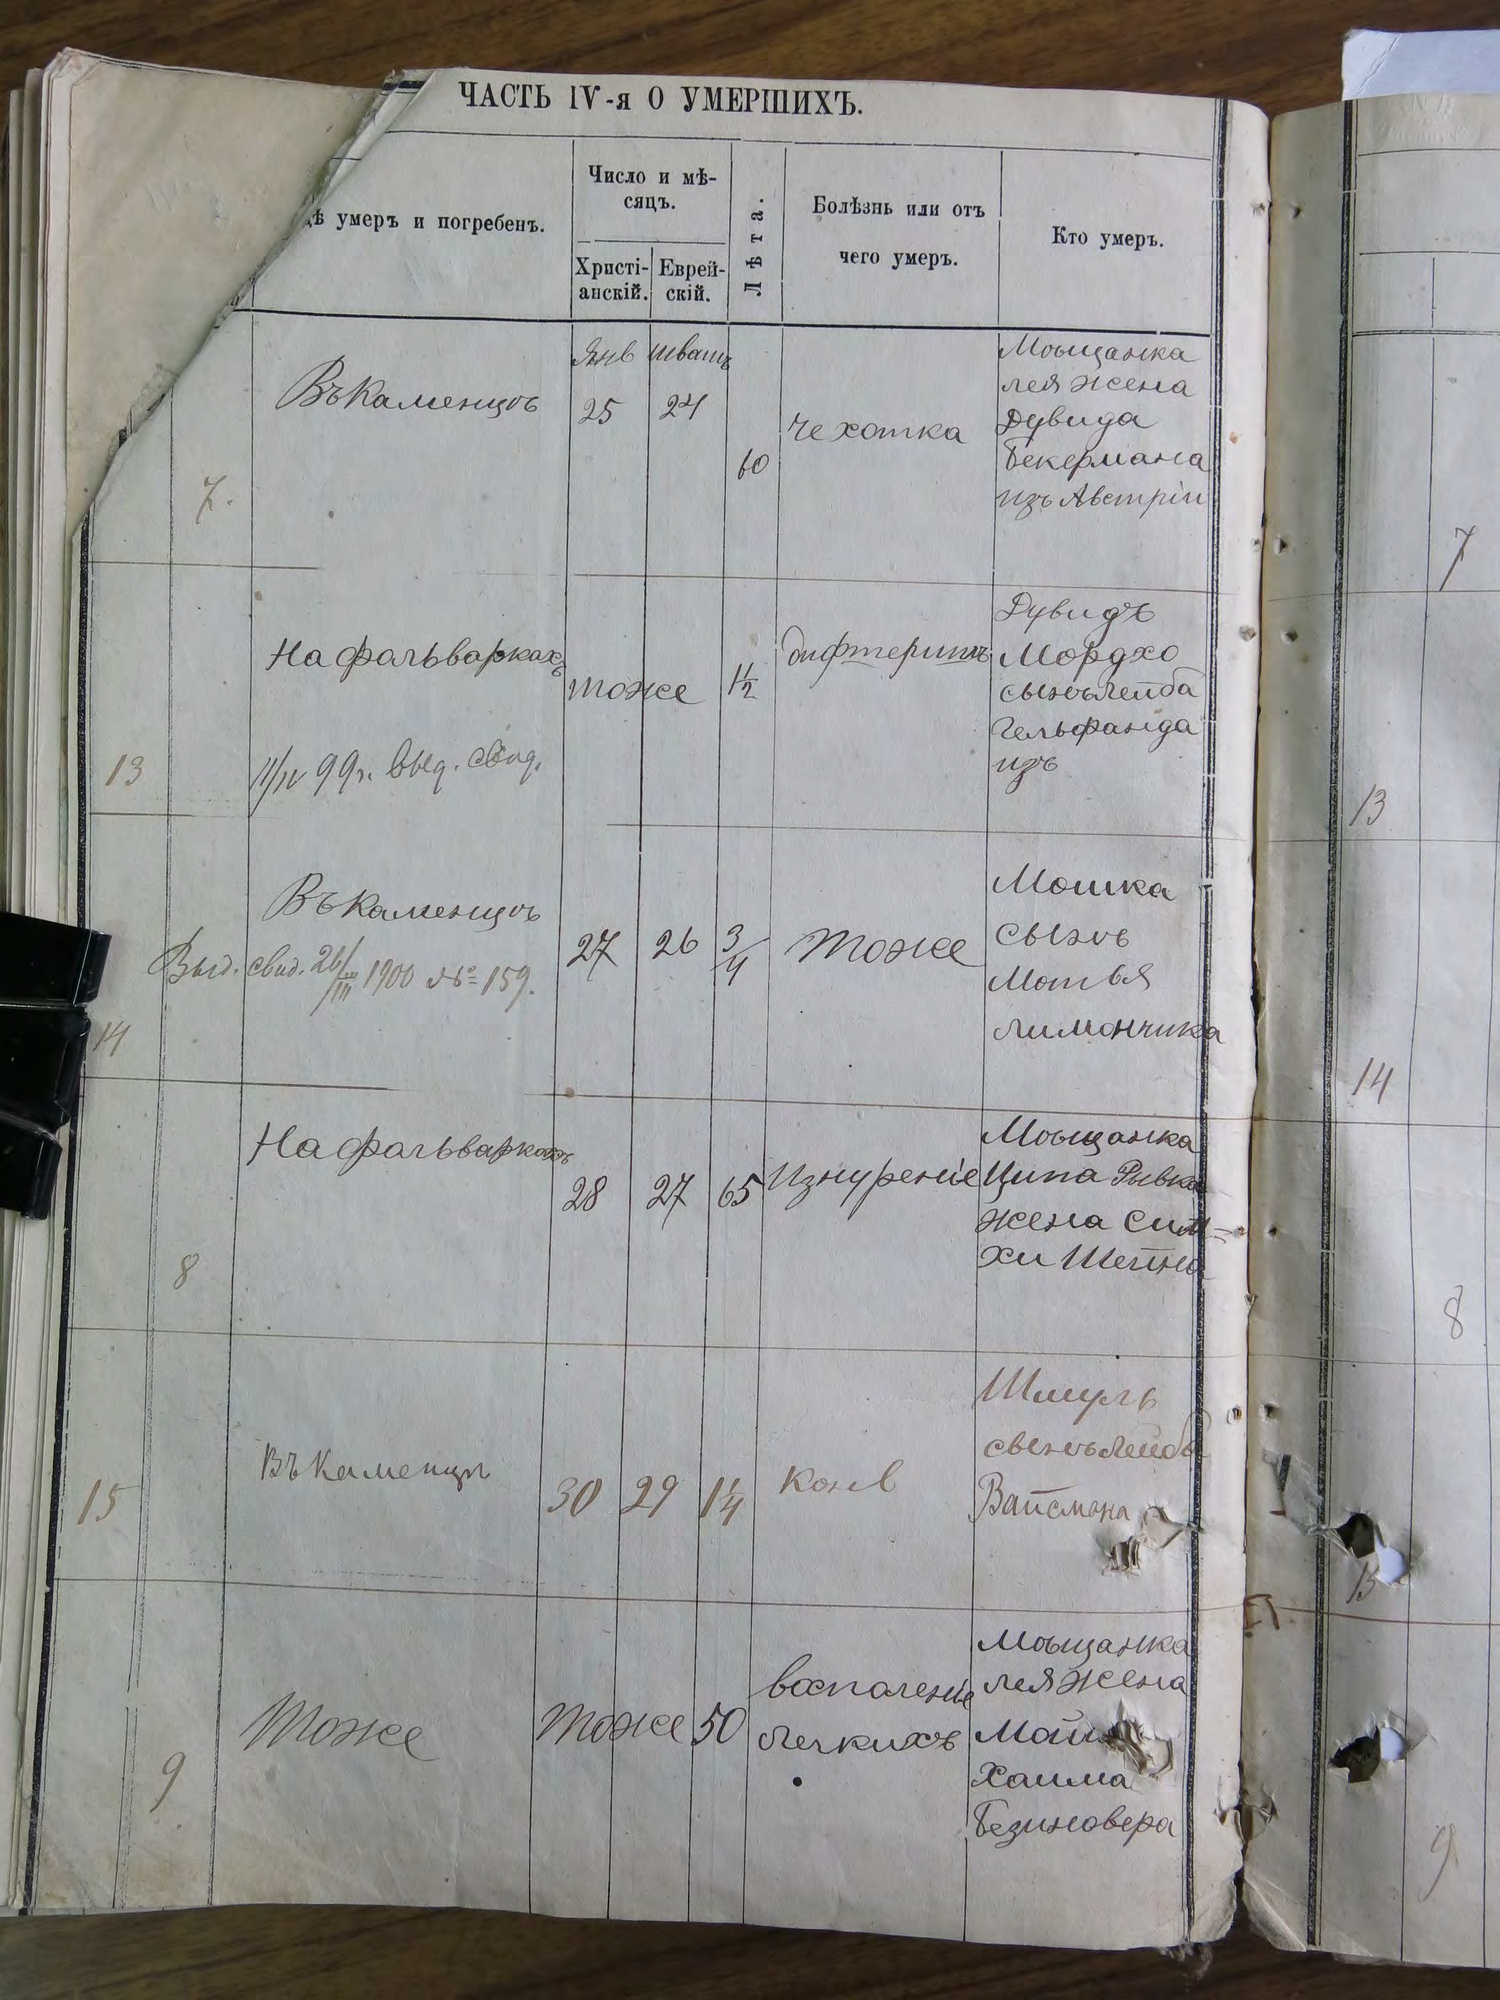 ЧАСТЬ IV-я О УМЕРШИХЪ.
дѣ умеръ и погребенъ.
Число и мѣ-
сяцъ.
Христі-
анскій.
Еврей-
скій.
Лѣта.
Болѣзнь или отъ
чего умеръ.
Кто умеръ.
7.
Въ Каменцѣ
Янв Шватъ
25 24
60
Чехотка
Мѣщанка
Лея жена
Дувида
Бекермана
изъ Австріи
7
13
На фальваркахъ
11/IV 99 г. выд. свид.
тоже
1 1/2
дифтеритъ
Дувидъ
Мордхо
сынъ Лейба
Гельфанда
изъ
13
14
Въ Каменцѣ
Выд. свид. 26/III 1900 № 159.
27 26
3/4
тоже
Мошка
сынъ
Мотья
Лимончика
14
8
На фальваркахъ
28 27
65
Изнуреніе
Мѣщанка
Ципа Рывка
жена Сим-
хи Шейна
8
15
Въ Каменцѣ
30 29
1 1/4
конв
Шмуль
сынъ Лейбы
Вайсмана
15
9
Тоже
тоже
50
воспаленіе
легкихъ
Мѣщанка
Лея жена
Хаима
Безиновера
9